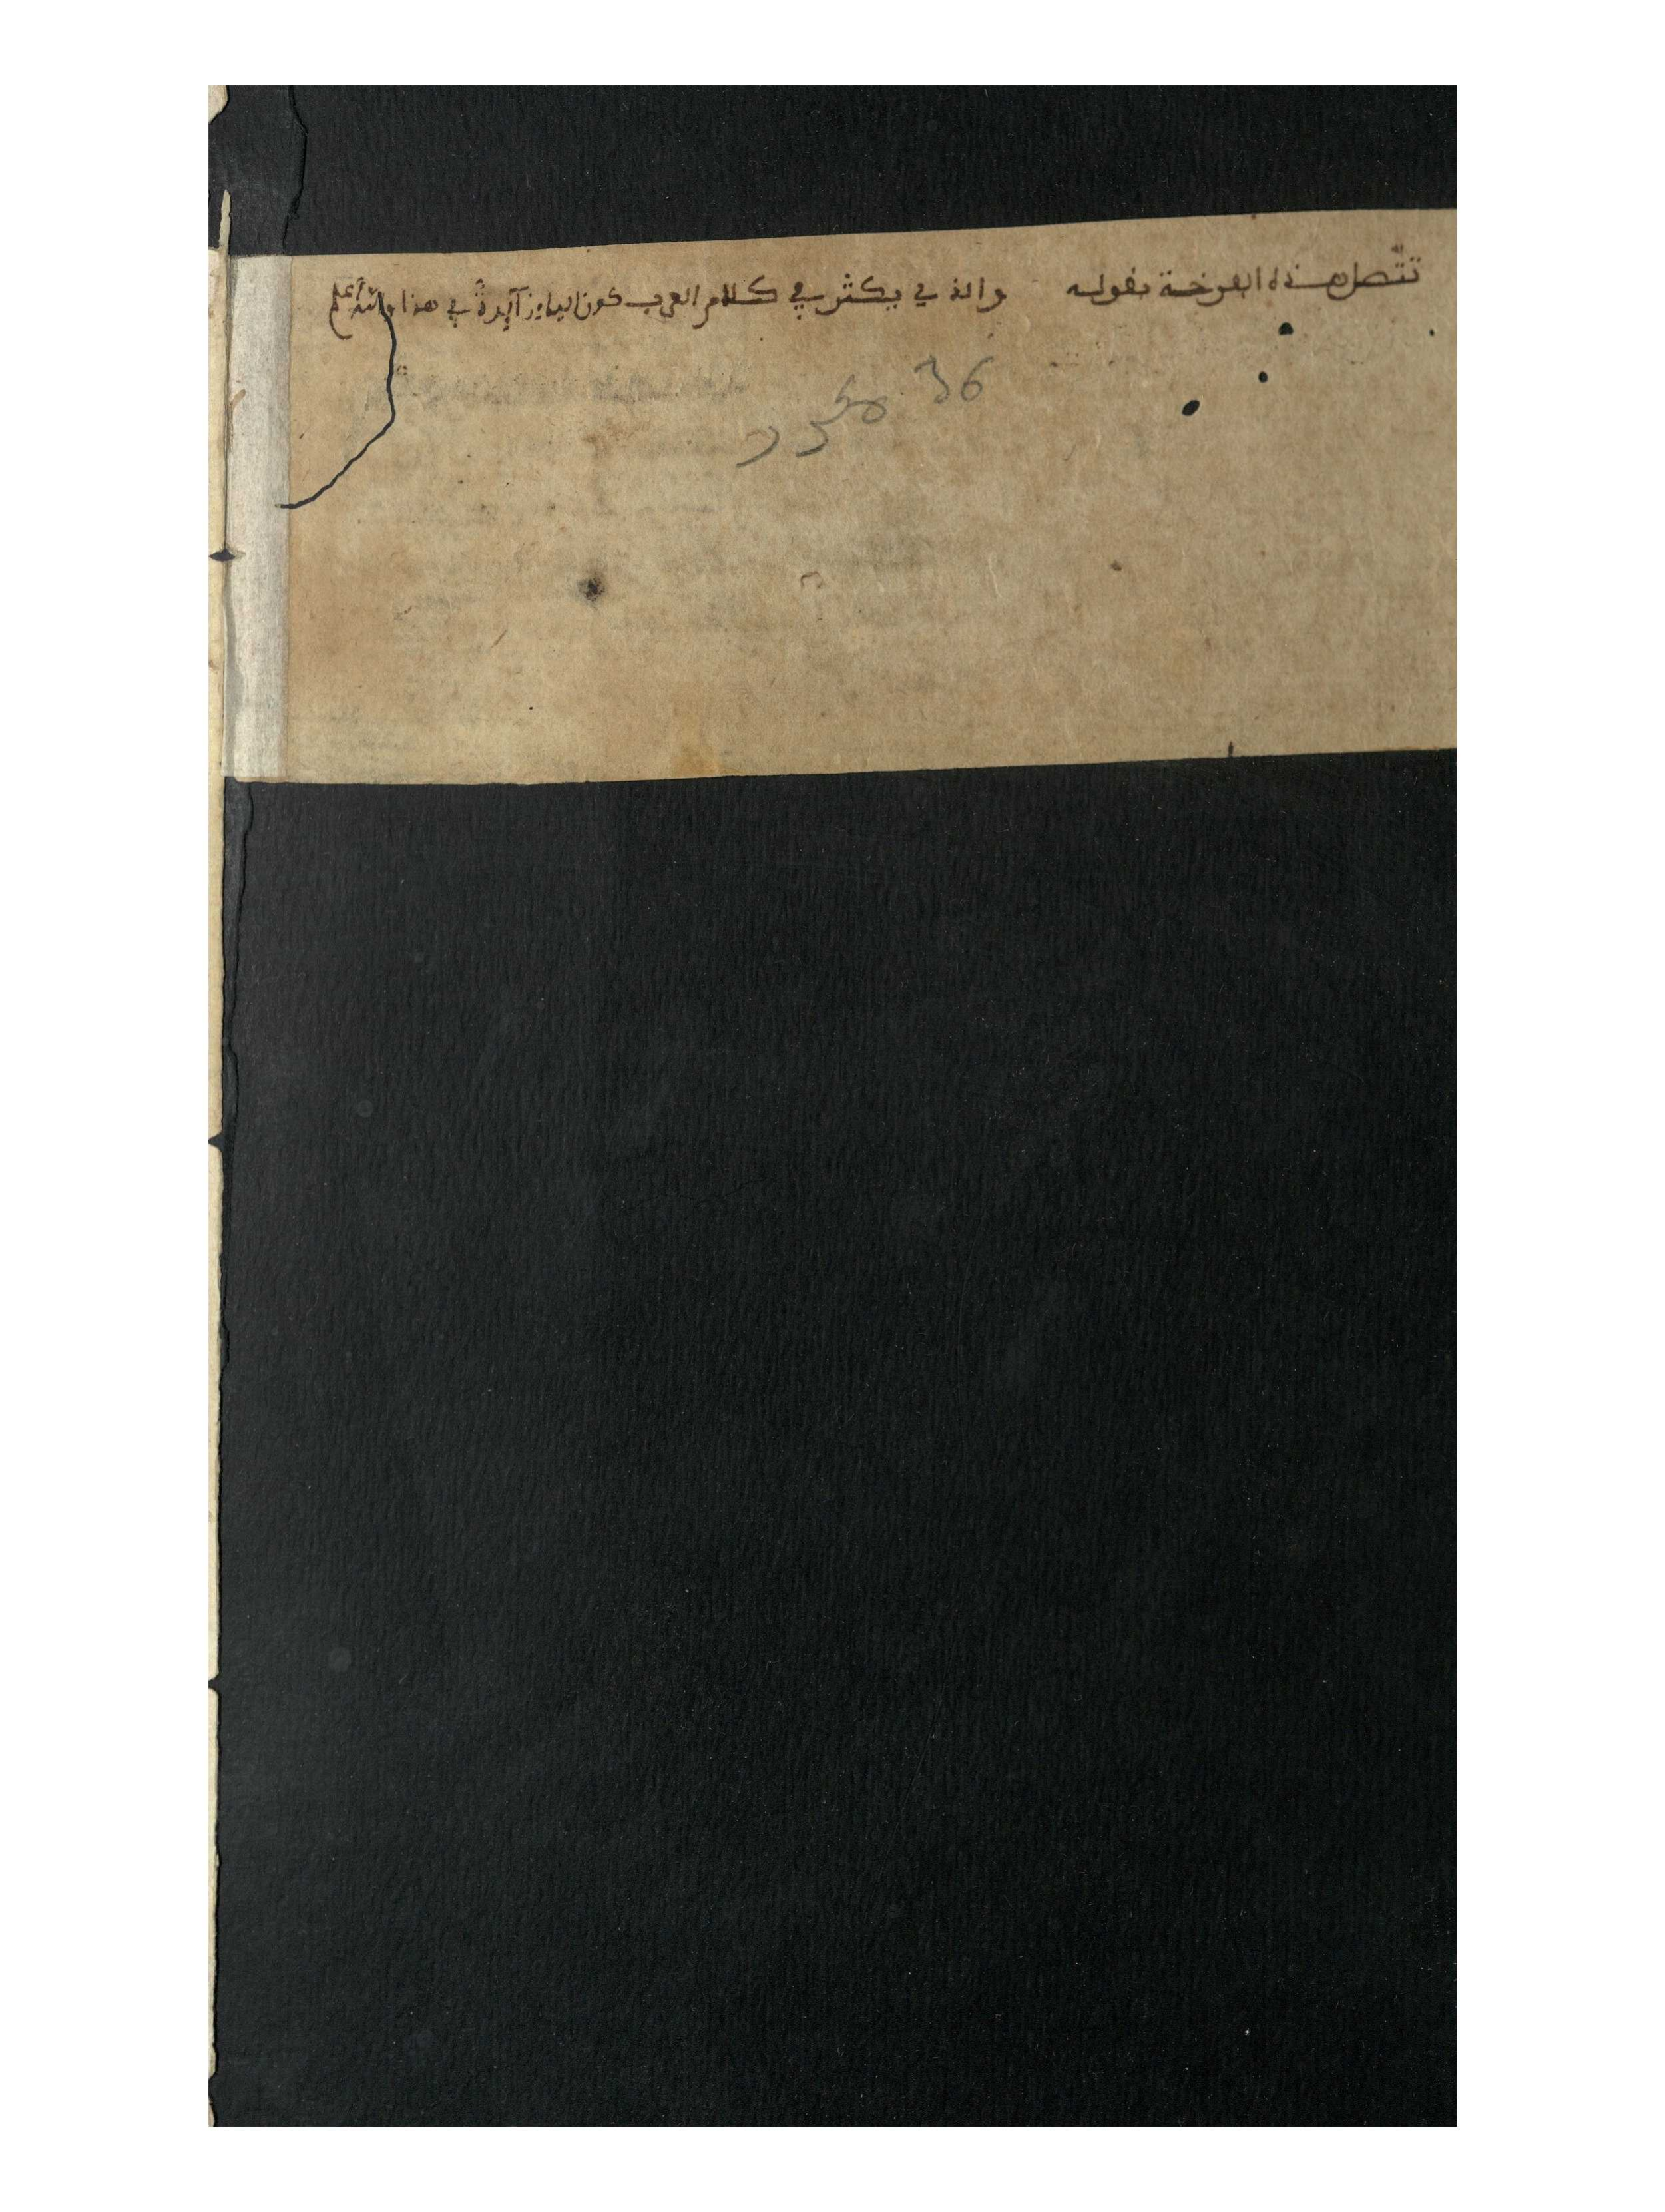 تتصل هذه الفرخة بقوله والذي يكثر في كلام العرب كون الباء زائدة في هذا والله أعلم
36